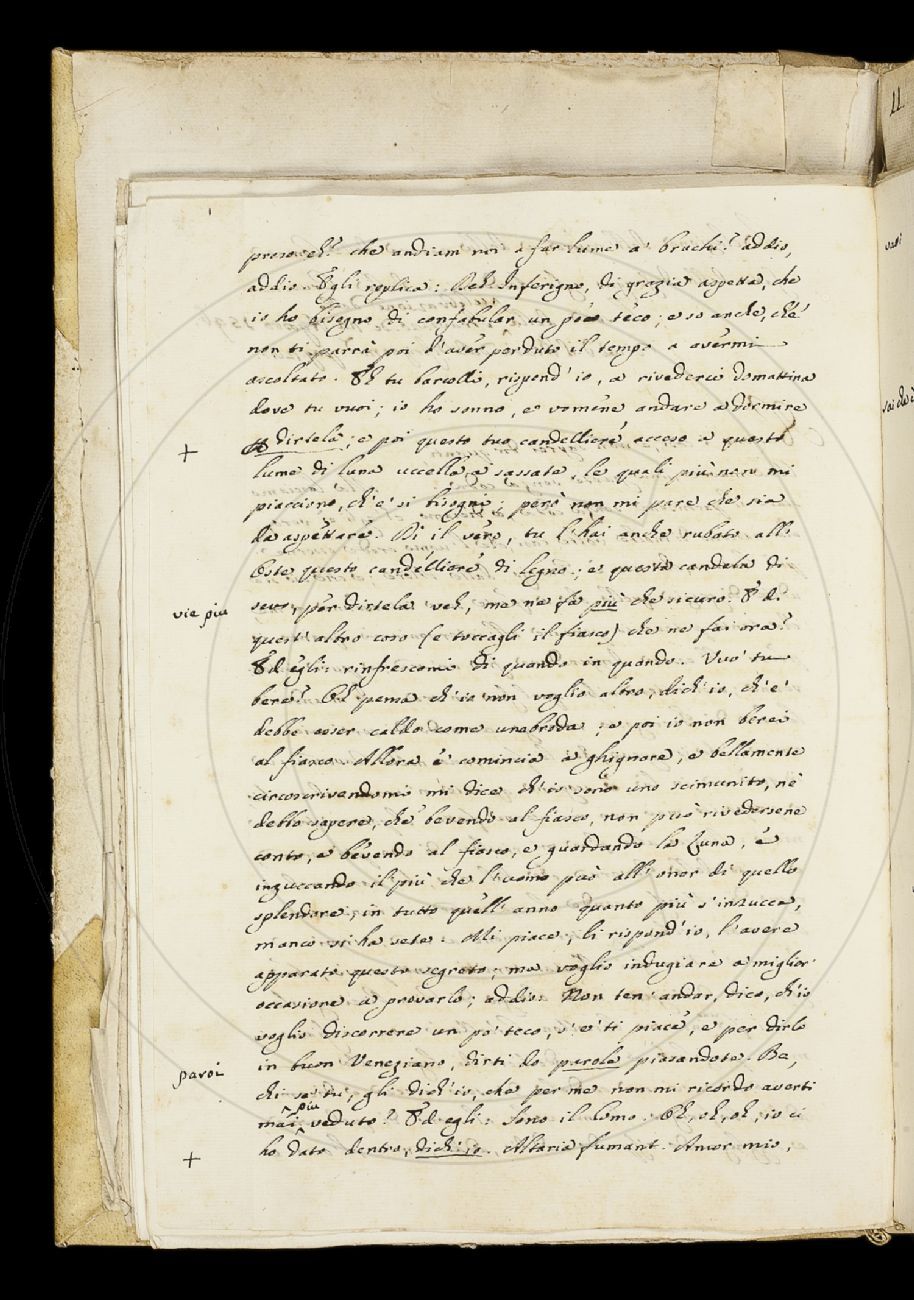 preso eh? che andiam noi a far lume a' bruchi? addio,
addio. Egli replica: Deh Inferigno, di grazia aspetta, che
io ho bisogno di confabular un poco teco; e so anche, che
non ti parrà poi d'aver perduto il tempo a avermi
ascoltato. Eh tu barcolli, rispond' io, a rivederci domattina
dove tu vuoi; io ho sonno, e vomene andare a dormire
a dirtela; e poi questo tuo candelliere acceso a questo
lume di luna uccella a sassate, le quali più non mi
piacciono, ch' e' si bisogni: però non mi pare che sia
da aspettare. Di il vero, tu l' hai anche rubato all'
Oste questo candelliore di legno; e questa candela di
sevo, per dirtela veh, me ne fa più che sicuro. E d.
quest' altro coso (e toccagli il fiasco) che ne fai ora?
Ed egli: rinfrescomi di quando in quando. Vuo' tu
bere? Oh pensa ch' io non voglio altro, dich' io, ch' e'
debbe esser caldo come una broda; e poi io non berei
al fiasco. Allora e' comincia a ghignare, e bellamente
circoscrivendomi mi dice ch' io sono uno scimunito, nè
debbo sapere, che bevendo al fiasco, non può rivedersene
conto, e bevendo al fiasco, e guardando la Luna, e
inzuccando il più che l' uomo può all' onor di quello
splendore, in tutto quell' anno quanto più s' inzucca,
manco si ha sete. Mi piace, li rispond' io, l' avere
apparato questo segreto; ma voglio indugiare a miglior
occasione a provarlo; addio. Non ten' andar, dice, ch' io
voglio discorrere un po' teco, s' e' ti piace, e per dirlo
in buon Veneziano, dirti do parole piasandote. Be,
chi se' tu, gli dich' io, che per me non mi ricordo averti
mai più veduto? Ed egli: Sono il Lomo. Oh, oh, oh, io ci
ho dato dentro, dich' io. Altaria fumant. Amor mio,
+
vie più
paroi
+
11
sai che